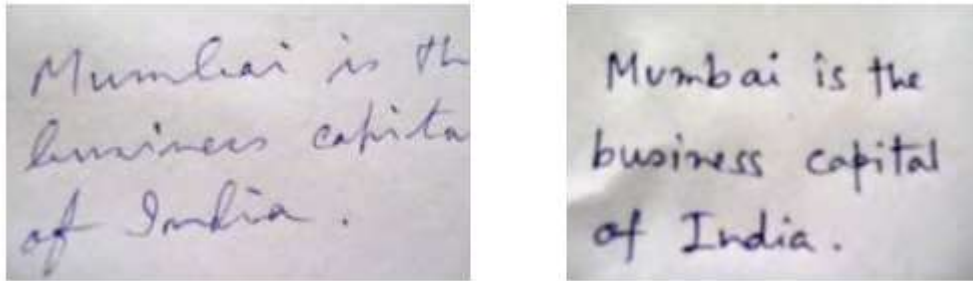 Mumbai is th
business capita
of India.
Mumbai is the
business capital
of India.